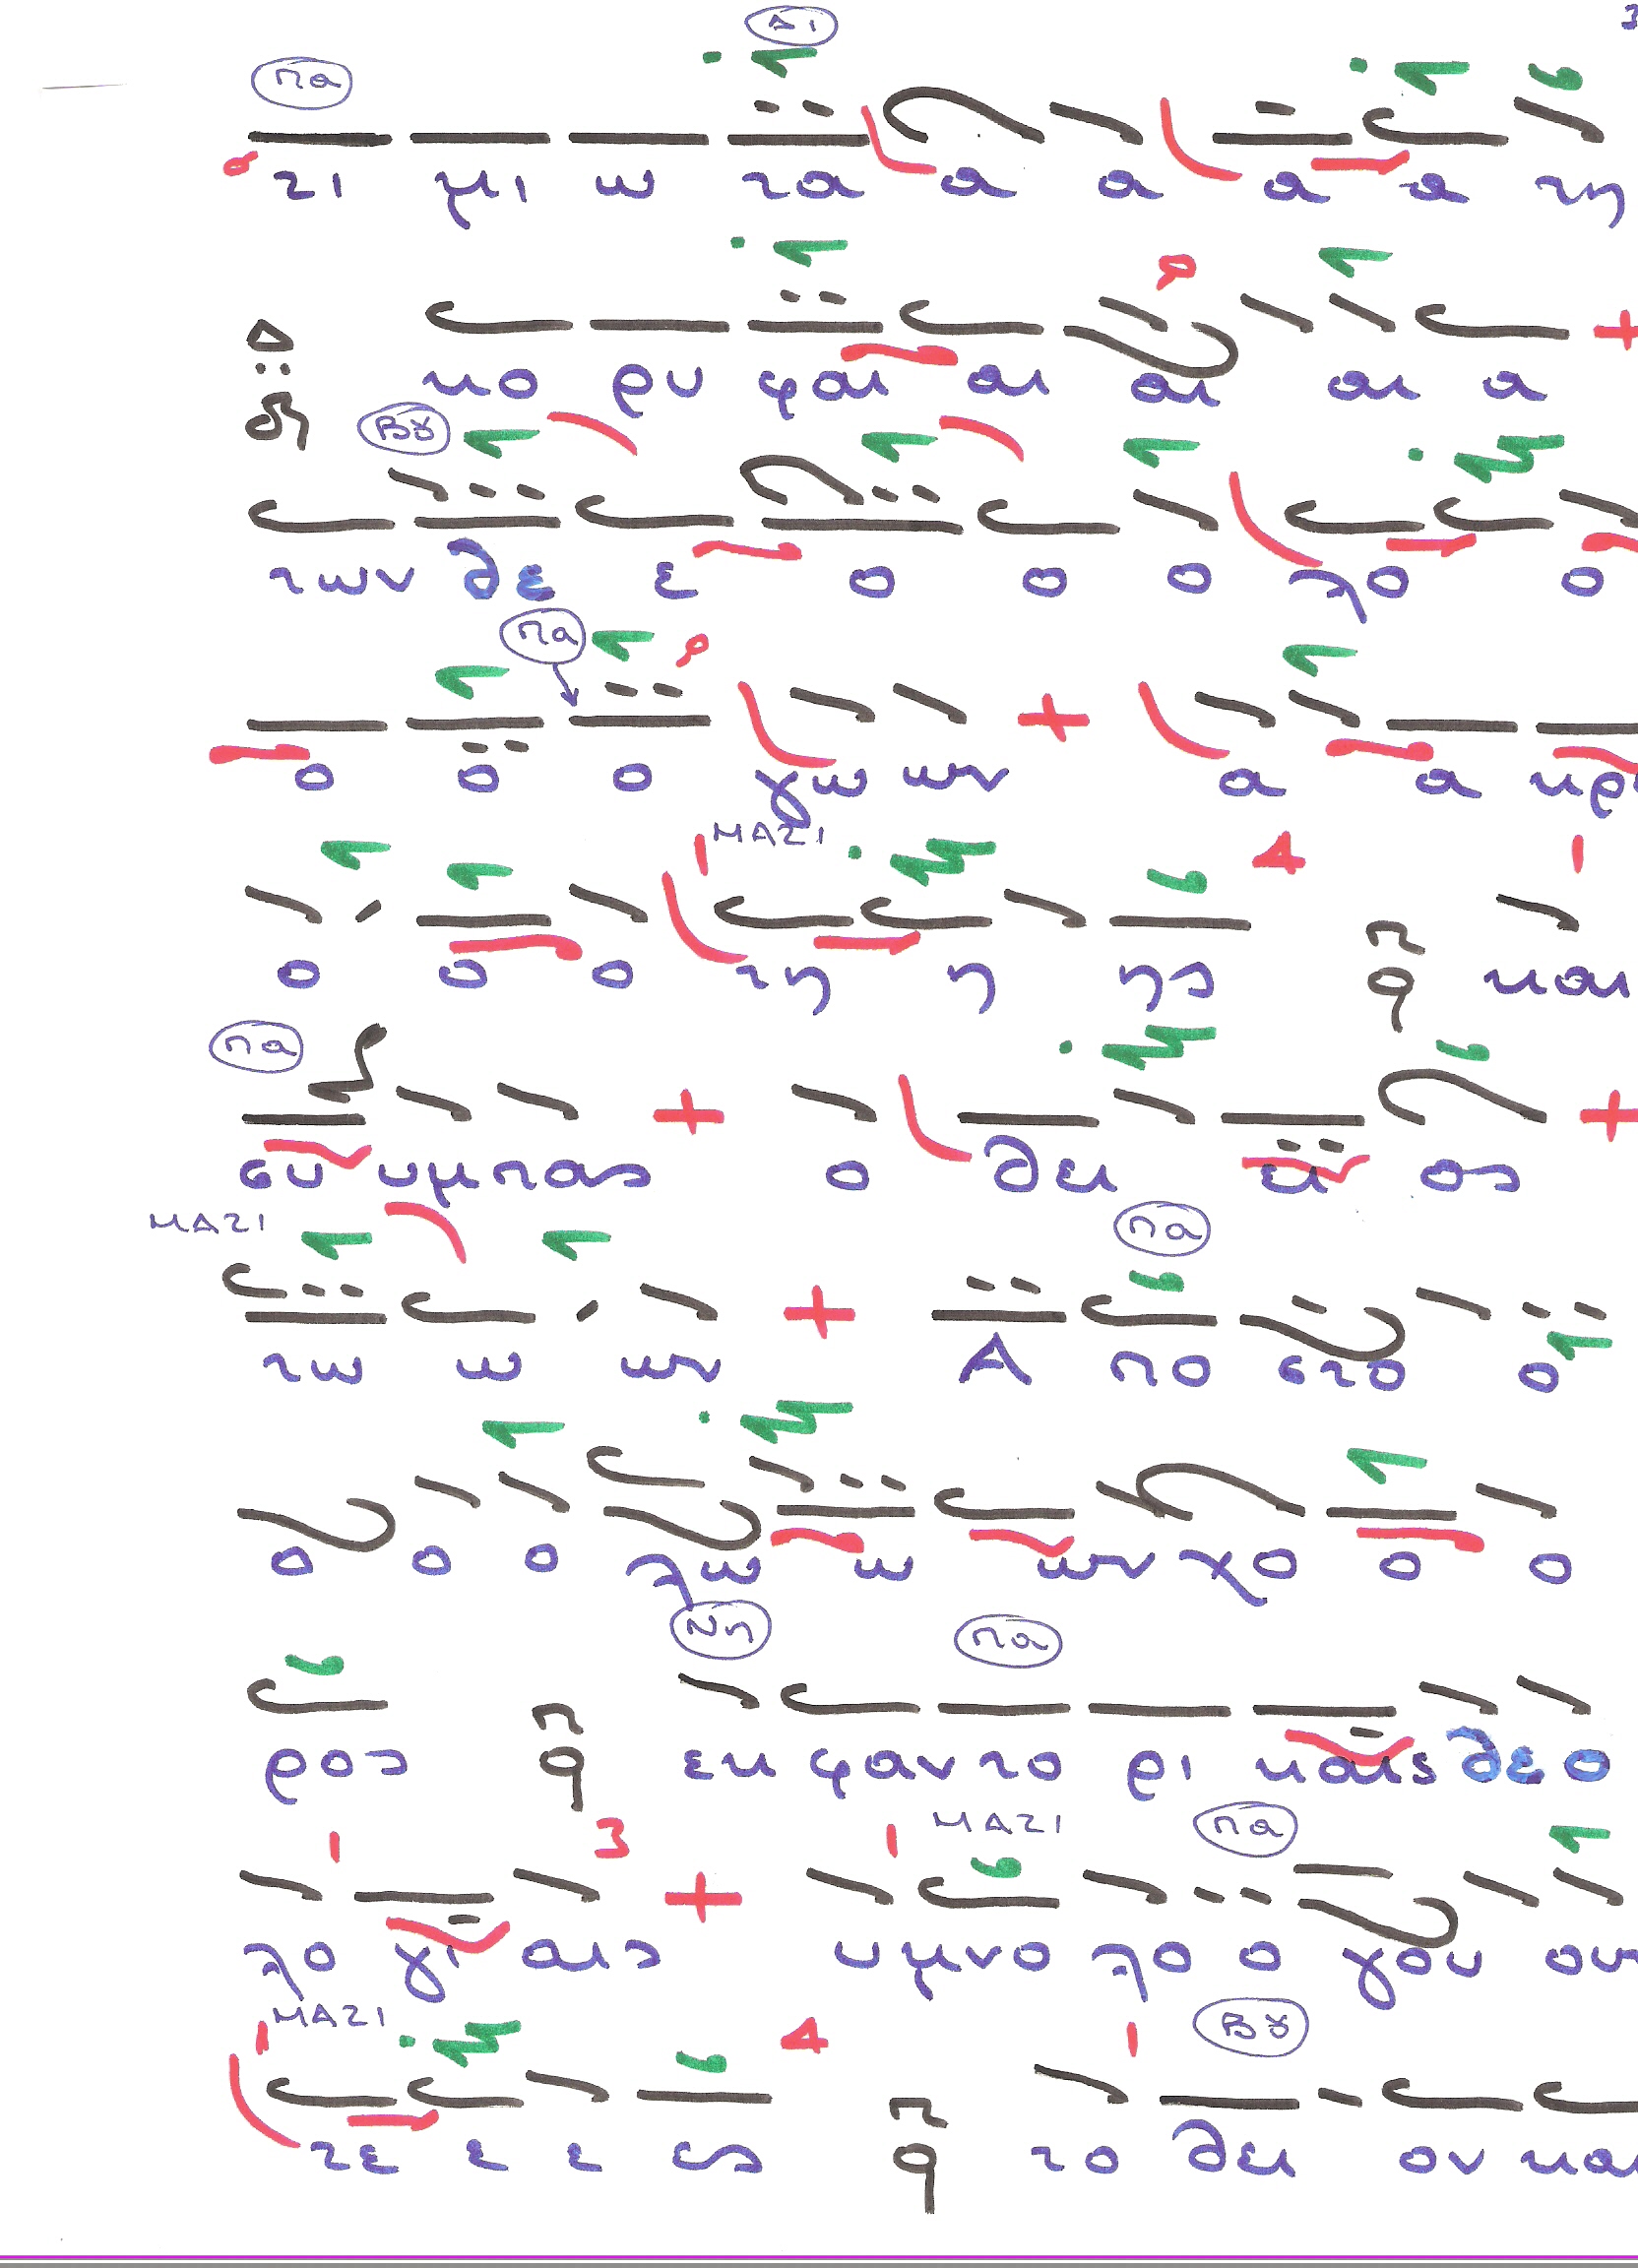 Δι 3
πα
τι μι ω τα α α α α τη
κο ρυ φαι αι αι αι α
Δ
Βȣ
των θε ε ο ο ο λο ο
πα
ο ο ο γω ων + α α κρ
ΜΑΖΙ 4
ο ο ο τη η ης π q και
πα
συ υμπας + ο θει ει ος +
ΜΑΖΙ πα
τω ω ων + Α πο στο ο
ο ο ο λω ω ων χο ο ο
Νη πα
ρος π q εκ φαν το ρι καις θεο
3 ΜΑΖΙ πα
λο γι αις + υμνο λο ο γου ου
ΜΑΖΙ 4 Βȣ
τε ε ε ες π q το θει ον και